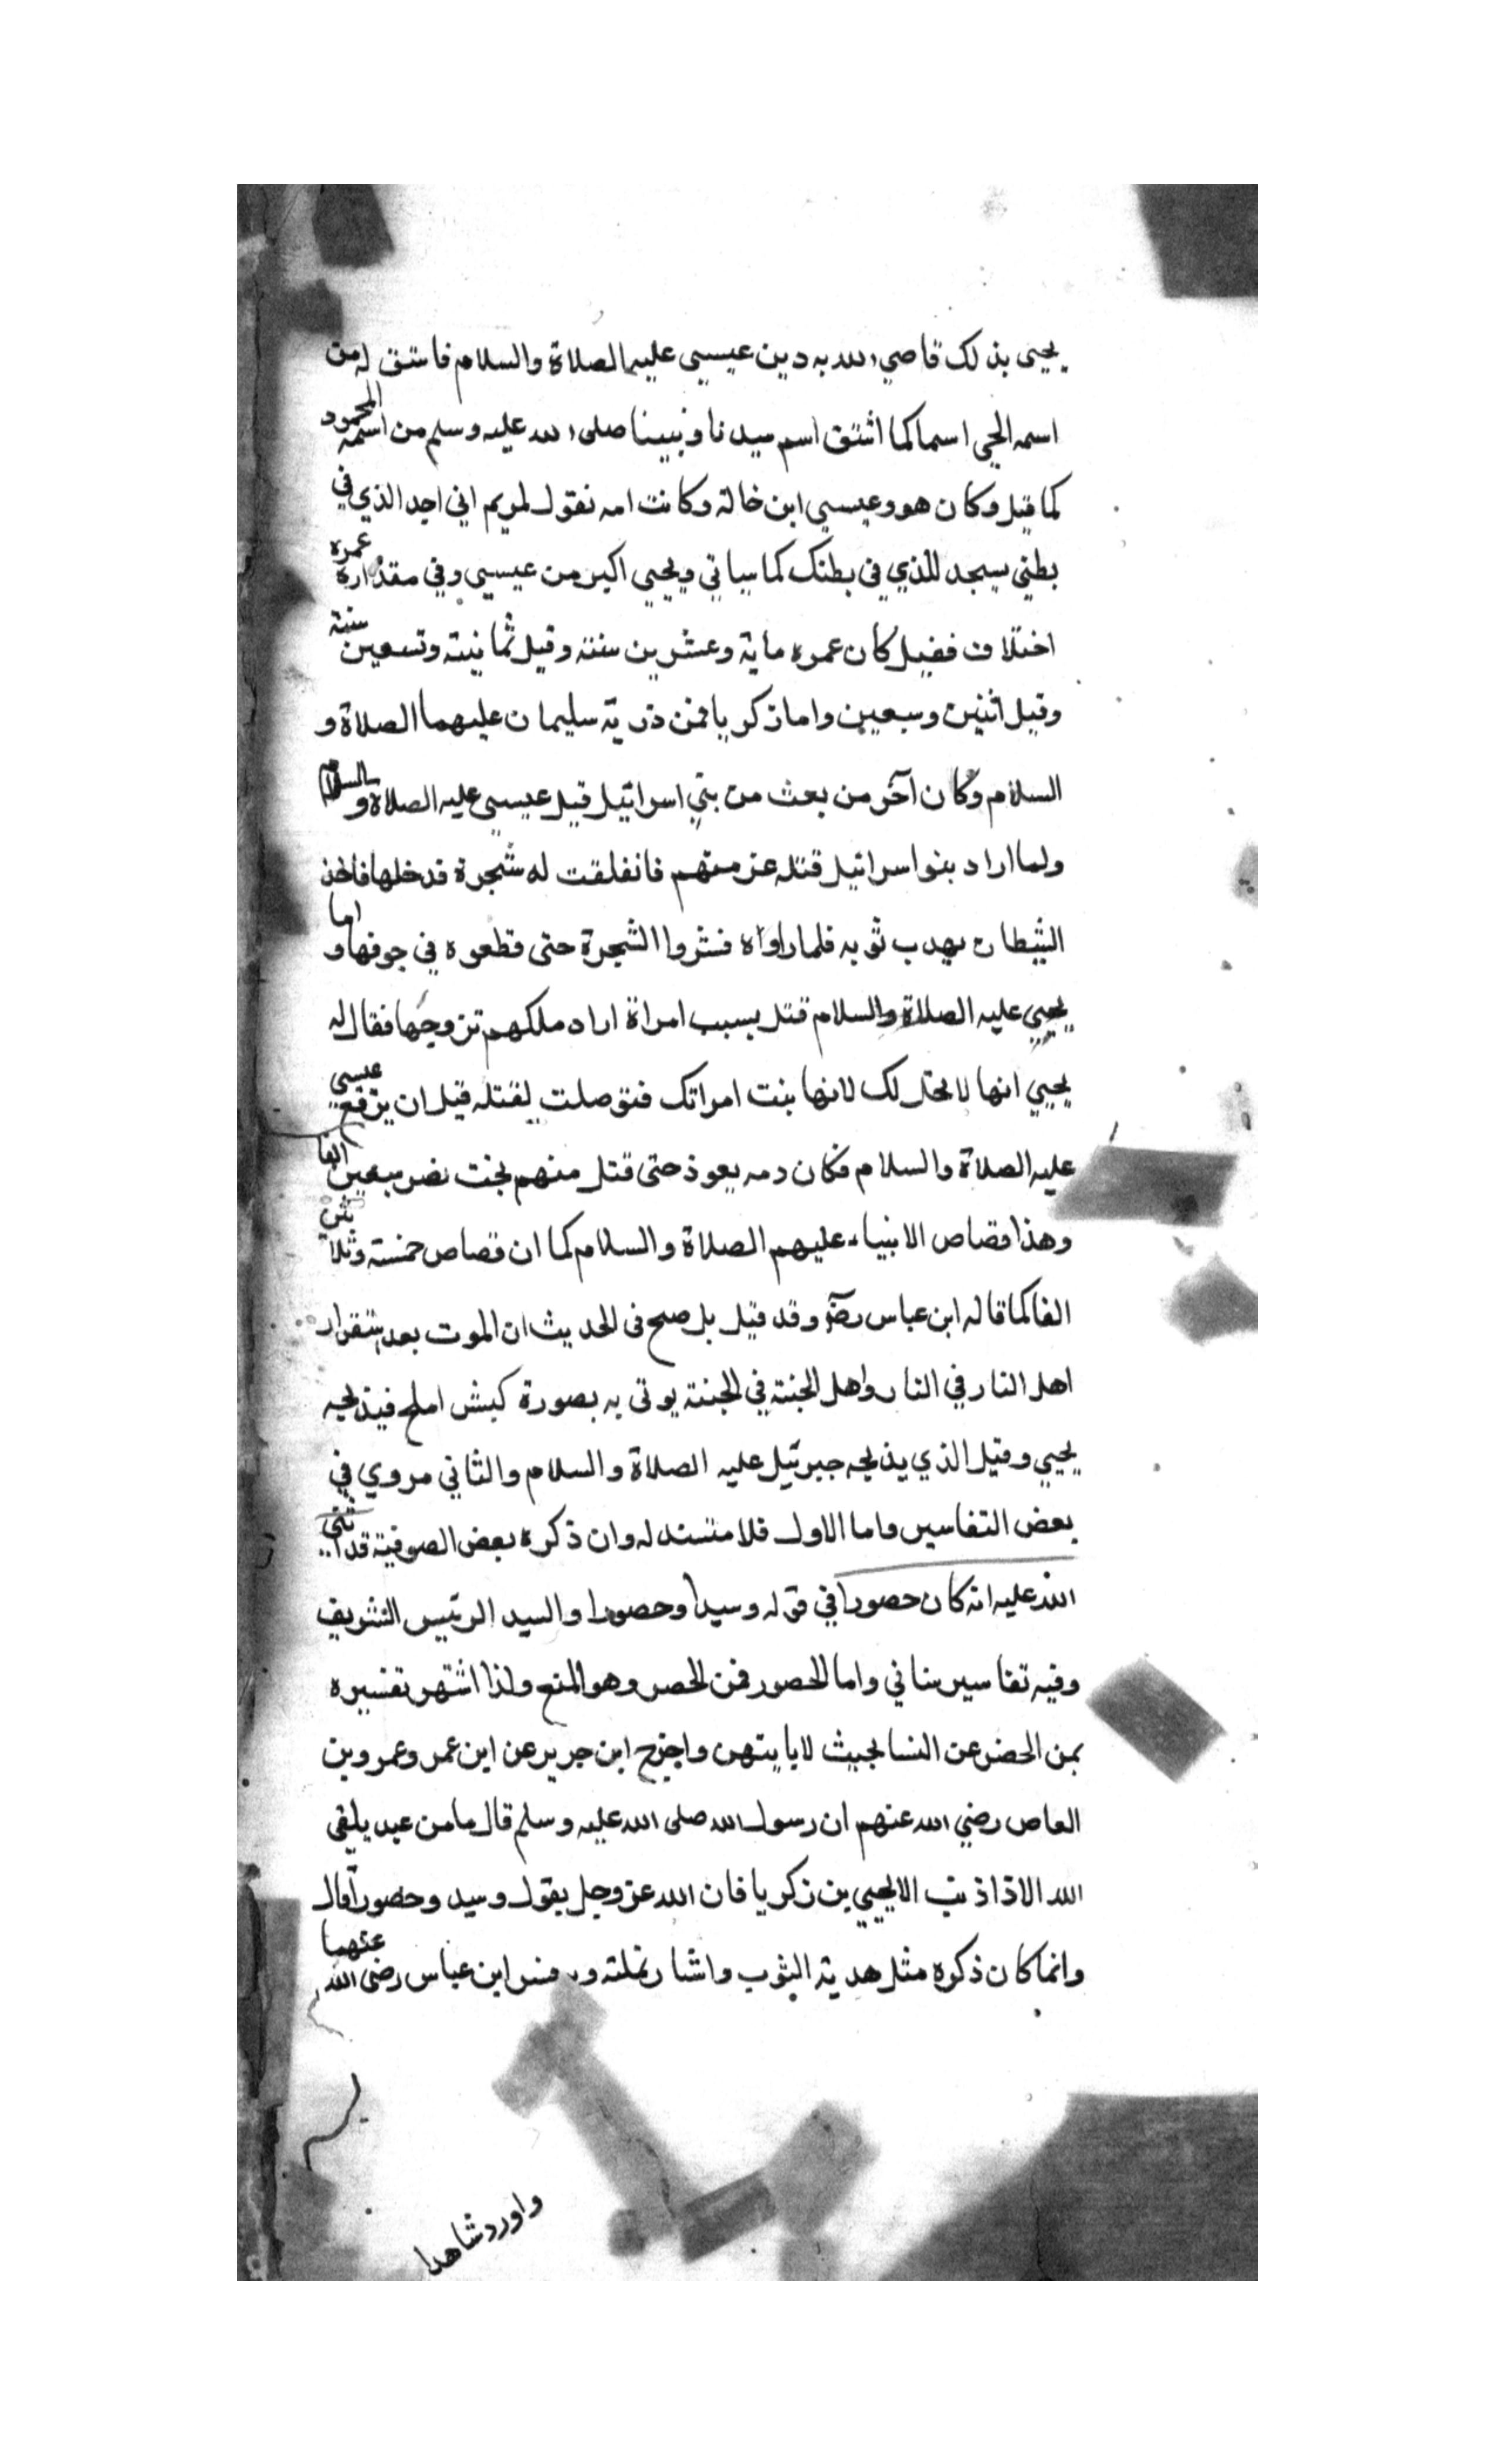 يحيى بذلك فاحيى الله به دين عيسى عليه الصلاة والسلام فاشتق له من
اسمه الحي اسما كما اشتق اسم سيدنا ونبينا صلى الله عليه وسلم من اسمه المحمود
كما قيل وكان هو وعيسى ابن خالة وكانت امه تقول لمريم اني اجد الذي في
بطني يسجد للذي في بطنك كما سياتي ويحيى اكبر من عيسى وفي مقداره عمره
اختلاف فقيل كان عمره ماية وعشرين سنة وقيل ثمانية وتسعين سنة
وقيل اثنين وسبعين واما زكريا فمن ذرية سليمان عليهما الصلاة و
السلام وكان آخر من بعث من بني اسرائيل قبل عيسى عليه الصلاة والسلام
ولما اراد بنو اسرائيل قتله عزمتهم فانفلقت له شجرة فدخلها فاخذ
الشيطان بهدب ثوبه فلما راواه فنشروا الشجرة حتى قطعوه في جوفها واما
يحيى عليه الصلاة والسلام قتل بسبب امراة اراد ملكهم تزوجها فقال له
يحيى انها لا تحل لك لانها بنت امراتك فتوصلت لقتله قبل ان يرفع عيسى
عليه الصلاة والسلام فكان دمه يعوذ حتى قتل منهم بخت نصر سبعين الفا
وهذا قصاص الانبياء عليهم الصلاة والسلام كما ان قصاص خمسة وثلاثين
الفا كما قاله ابن عباس رضه وقد قيل بل صح في الحديث ان الموت بعد استقرار
اهل النار في النار واهل الجنة في الجنة يوتى به بصورة كبش املح فيذبحه
يحيى وقيل الذي يذبحه جبرئيل عليه الصلاة والسلام والثاني مروي في
بعض التفاسير واما الاول فلا مستند له وان ذكره بعض الصوفية قد اثنى
الله عليه انه كان حصورا في قوله وسيدا وحصورا والسيد الرئيس الشريف
وفيه تفاسير ستاتي واما الحصور فمن الحصر وهو المنع ولذا اشتهر تفسيره
بمن الحضر عن النسا بحيث لا ياتيهن واخرج ابن جرير عن ابن عمر وعمرو بن
العاص رضي الله عنهم ان رسول الله صلى الله عليه وسلم قال ما من عبد يلقى
الله الا ذا ذنب الا يحيى بن زكريا فان الله عز وجل يقول وسيد وحصورا قال
وانما كان ذكره مثل هدية الثوب واشار بنملته ابن عباس رضى الله عنهما
واورد شاهدا